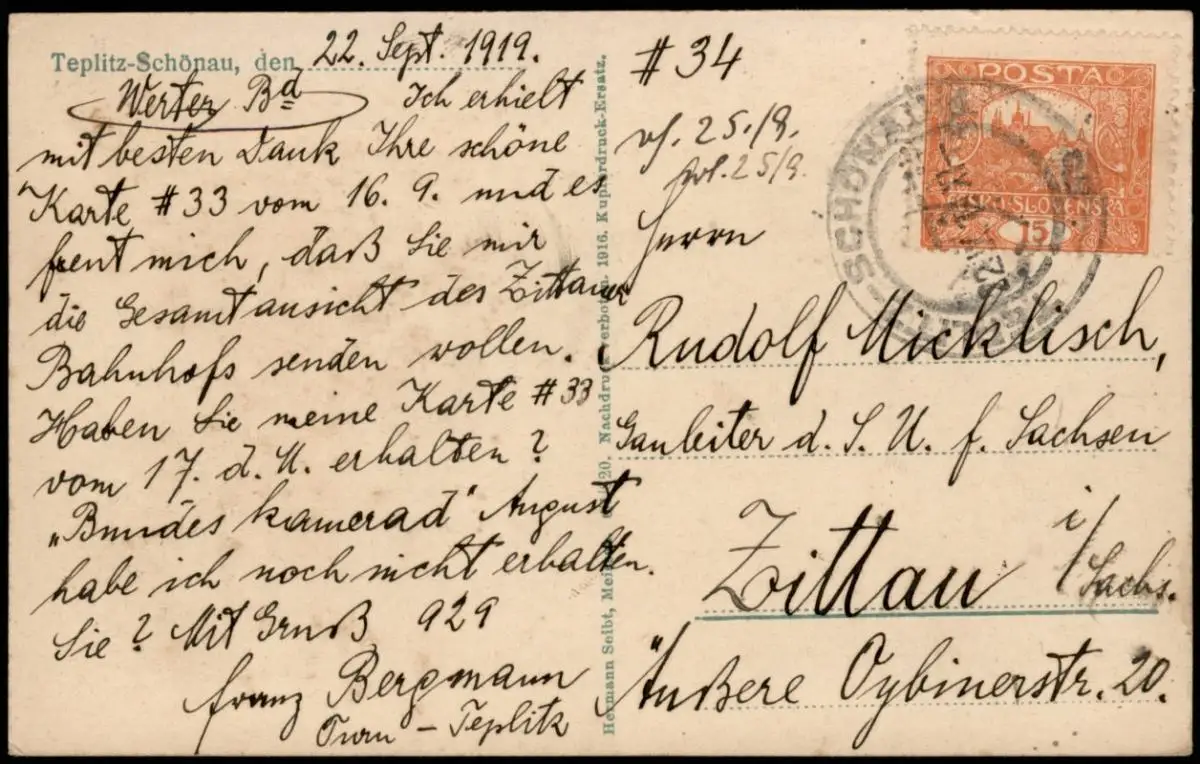 Teplitz-Schönau, den 22. Sept. 1919.
Werter Bd Ich erhielt
mit besten Dank Ihre schöne
Karte #33 vom 16. 9. und es
freut mich, daß Sie mir
die Gesamtansicht des Zittauer
Bahnhofs senden wollen.
Haben Sie meine Karte #33
vom 17. d. M. erhalten?
„Bundeskamerad" August
habe ich noch nicht erhalten.
Sie? Mit Gruß 929
Franz Bergmann
Turn - Teplitz
Hermann Seibt, Meißen. 1916. Kupferdruck-Ersatz.
Nachdruck verboten.
#34
25./9.
25/9.
Herrn
Rudolf Micklisch,
Gauleiter d. S. U. f. Sachsen
Zittau i/Sachs.
Äußere Oybinerstr. 20.
POSTA
ČESKO-SLOVENSKÁ
15
SCHÖNAU